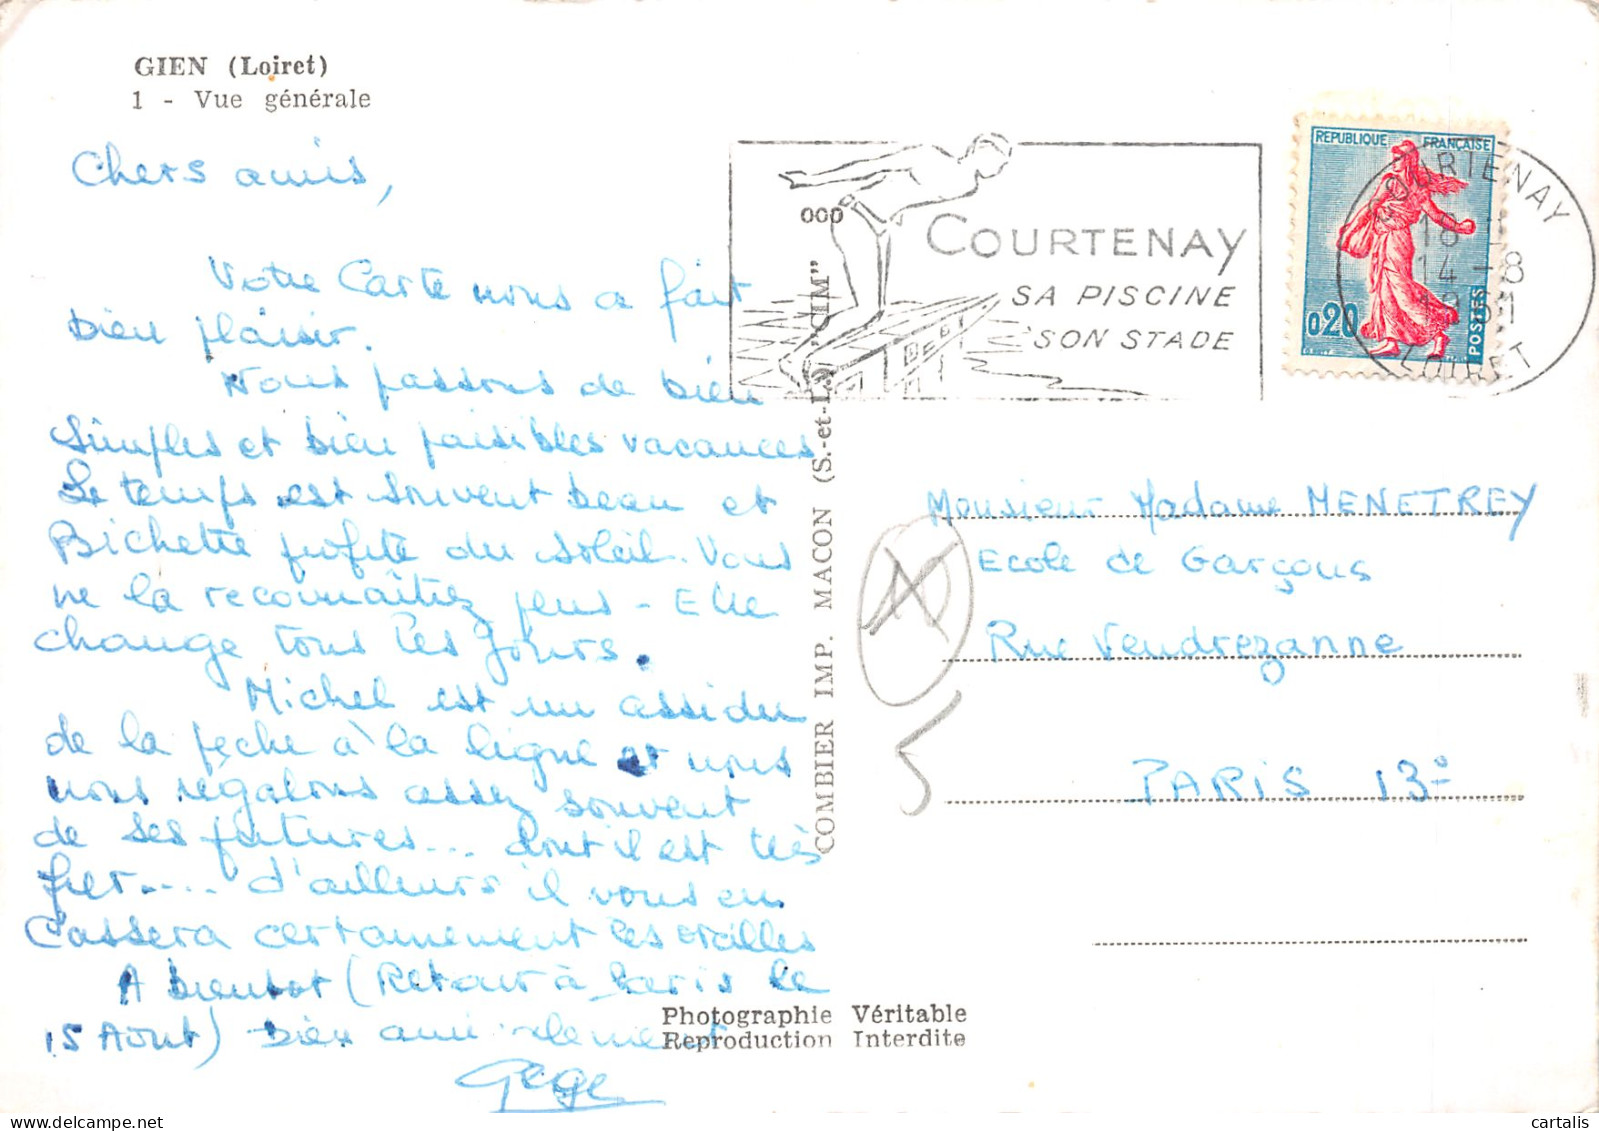 GIEN (Loiret)
1 - Vue générale
Chers amis,
Votre Carte nous a fait
bien plaisir.
Nous passons de bien
simples et bien paisibles vacances
Le temps est souvent beau et
Bichette profite du soleil. Vous
ne la reconnaîtriez plus - Elle
change tous les jours.
Michel est un assidu
de la pêche à la ligne et nous
nous régalons assez souvent
de ses fritures... dont il est très
fier.... d'ailleurs il vous en
Cassera certainement les oreilles
A bientot (Retour à Paris le
15 Aout) bien amicalement
Gege
COMBIER IMP. MACON (S.-et-L.) "CIM"
OOO
COURTENAY
SA PISCINE
SON STADE
REPUBLIQUE FRANÇAISE
0,20
POSTES
COURTENAY
18 H
14 - 8
1961
LOIRET
Monsieur Madame MENETREY
Ecole de Garçons
Rue Vendrezanne
PARIS 13e
5
Photographie Véritable
Reproduction Interdite
cartalis